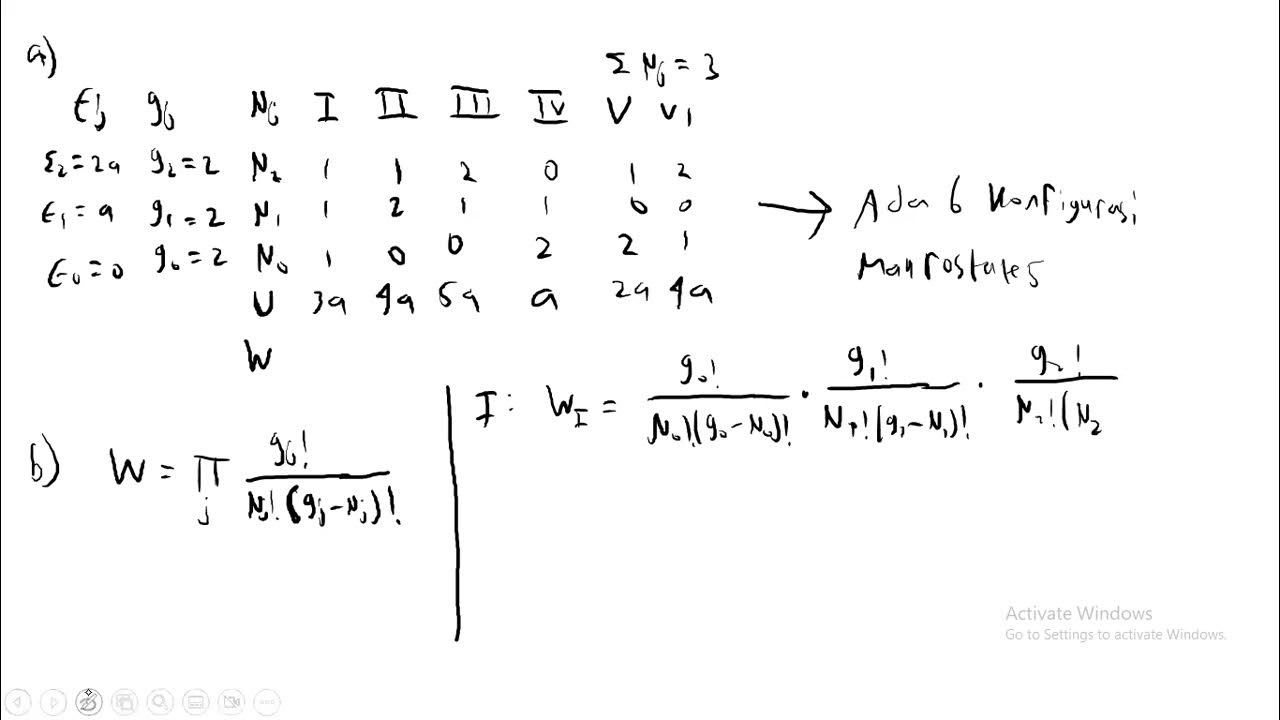 a)
Σ Nj = 3
Ej gj Nj I II III IV V VI
ε2 = 2a g2 = 2 N2 1 1 2 0 1 2
ε1 = a g1 = 2 N1 1 2 1 1 0 0
ε0 = 0 g0 = 2 N0 1 0 0 2 2 1
U 3a 4a 5a a 2a 4a
W
→ Ada 6 Konfigurasi
Makrostates
b) W = Π_j gj! / Nj! (gj - Nj)!
I : W_I = g0! / N0! (g0 - N0)! · g1! / N1! (g1 - N1)! · g2! / N2! (N2
Activate Windows
Go to Settings to activate Windows.